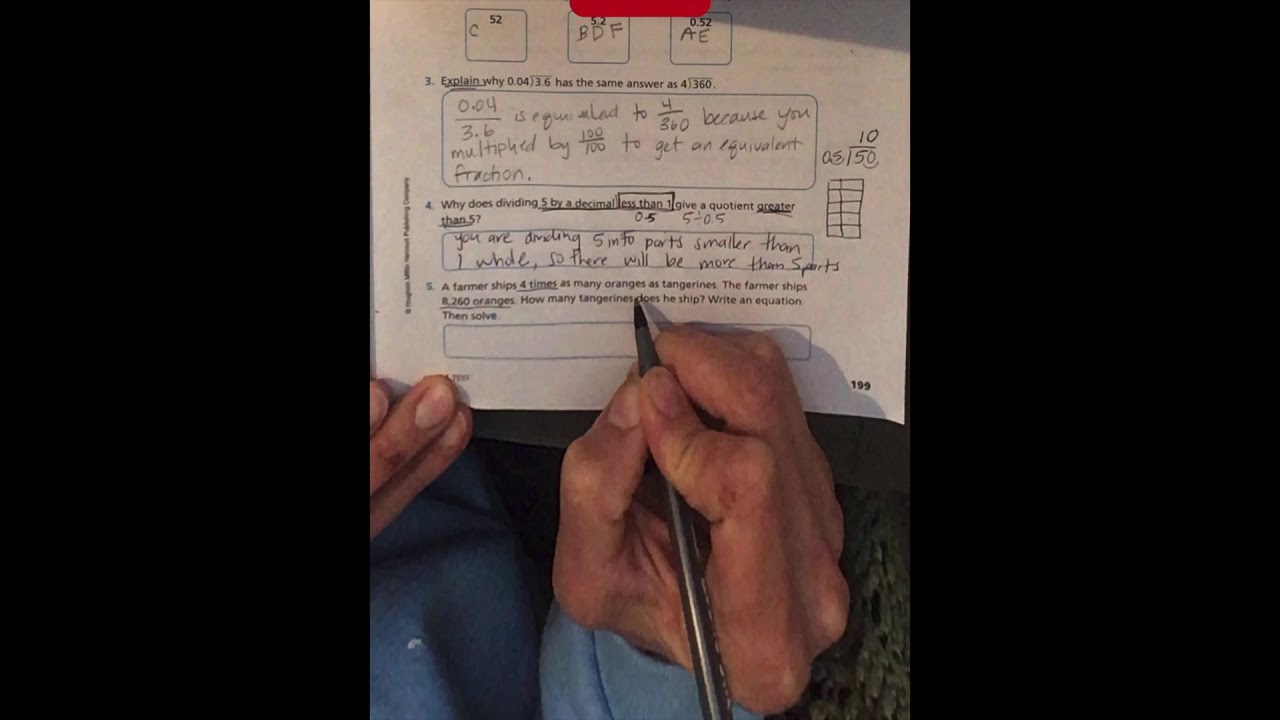 52
5.2
0.52
C
BDF
AE
3. Explain why 0.04)3.6 has the same answer as 4)360.
0.04/3.6 is equivalent to 4/360 because you
multiplied by 100/100 to get an equivalent
fraction.
10
0.5)50
4. Why does dividing 5 by a decimal less than 1 give a quotient greater
than 5?
0.5 5÷0.5
you are dividing 5 into parts smaller than
1 whole, so there will be more than 5 parts
5. A farmer ships 4 times as many oranges as tangerines. The farmer ships
8,260 oranges. How many tangerines does he ship? Write an equation.
Then solve.
TEST
199
© Houghton Mifflin Harcourt Publishing Company